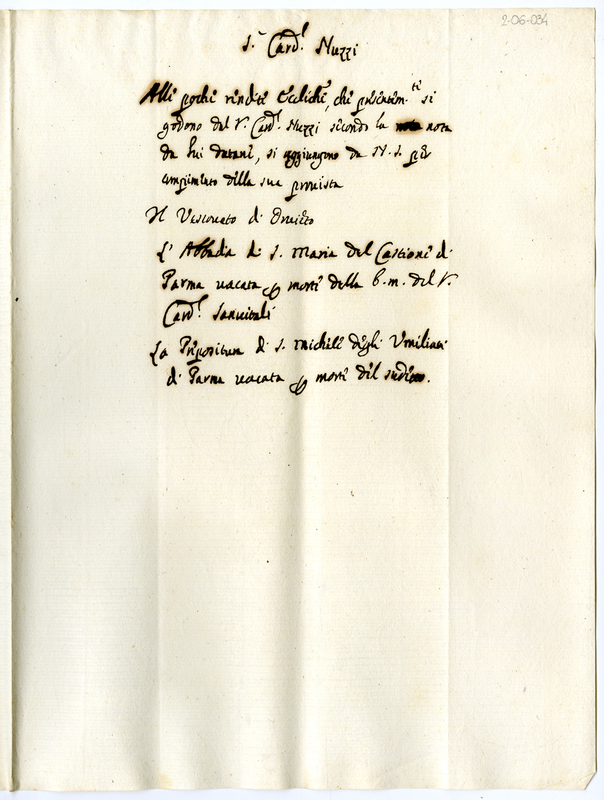 2-06-034
S.r Card.l Nuzzi
Alle poche rendite Eccliche, che presentem.te si
godono dal S. Card.l Nuzzi secondo la nota
da lui datane, si aggiungono da N. S. per
compimento della sua provista
Il Vescovato di Orvieto
L'Abbadia di S. Maria del Castione di
Parma vacata p morte della b.m. del S.
Card.l Sanvitali
La Prepositura di S. Michele degli Umiliati
di Parma vacata p morte del sudetto.